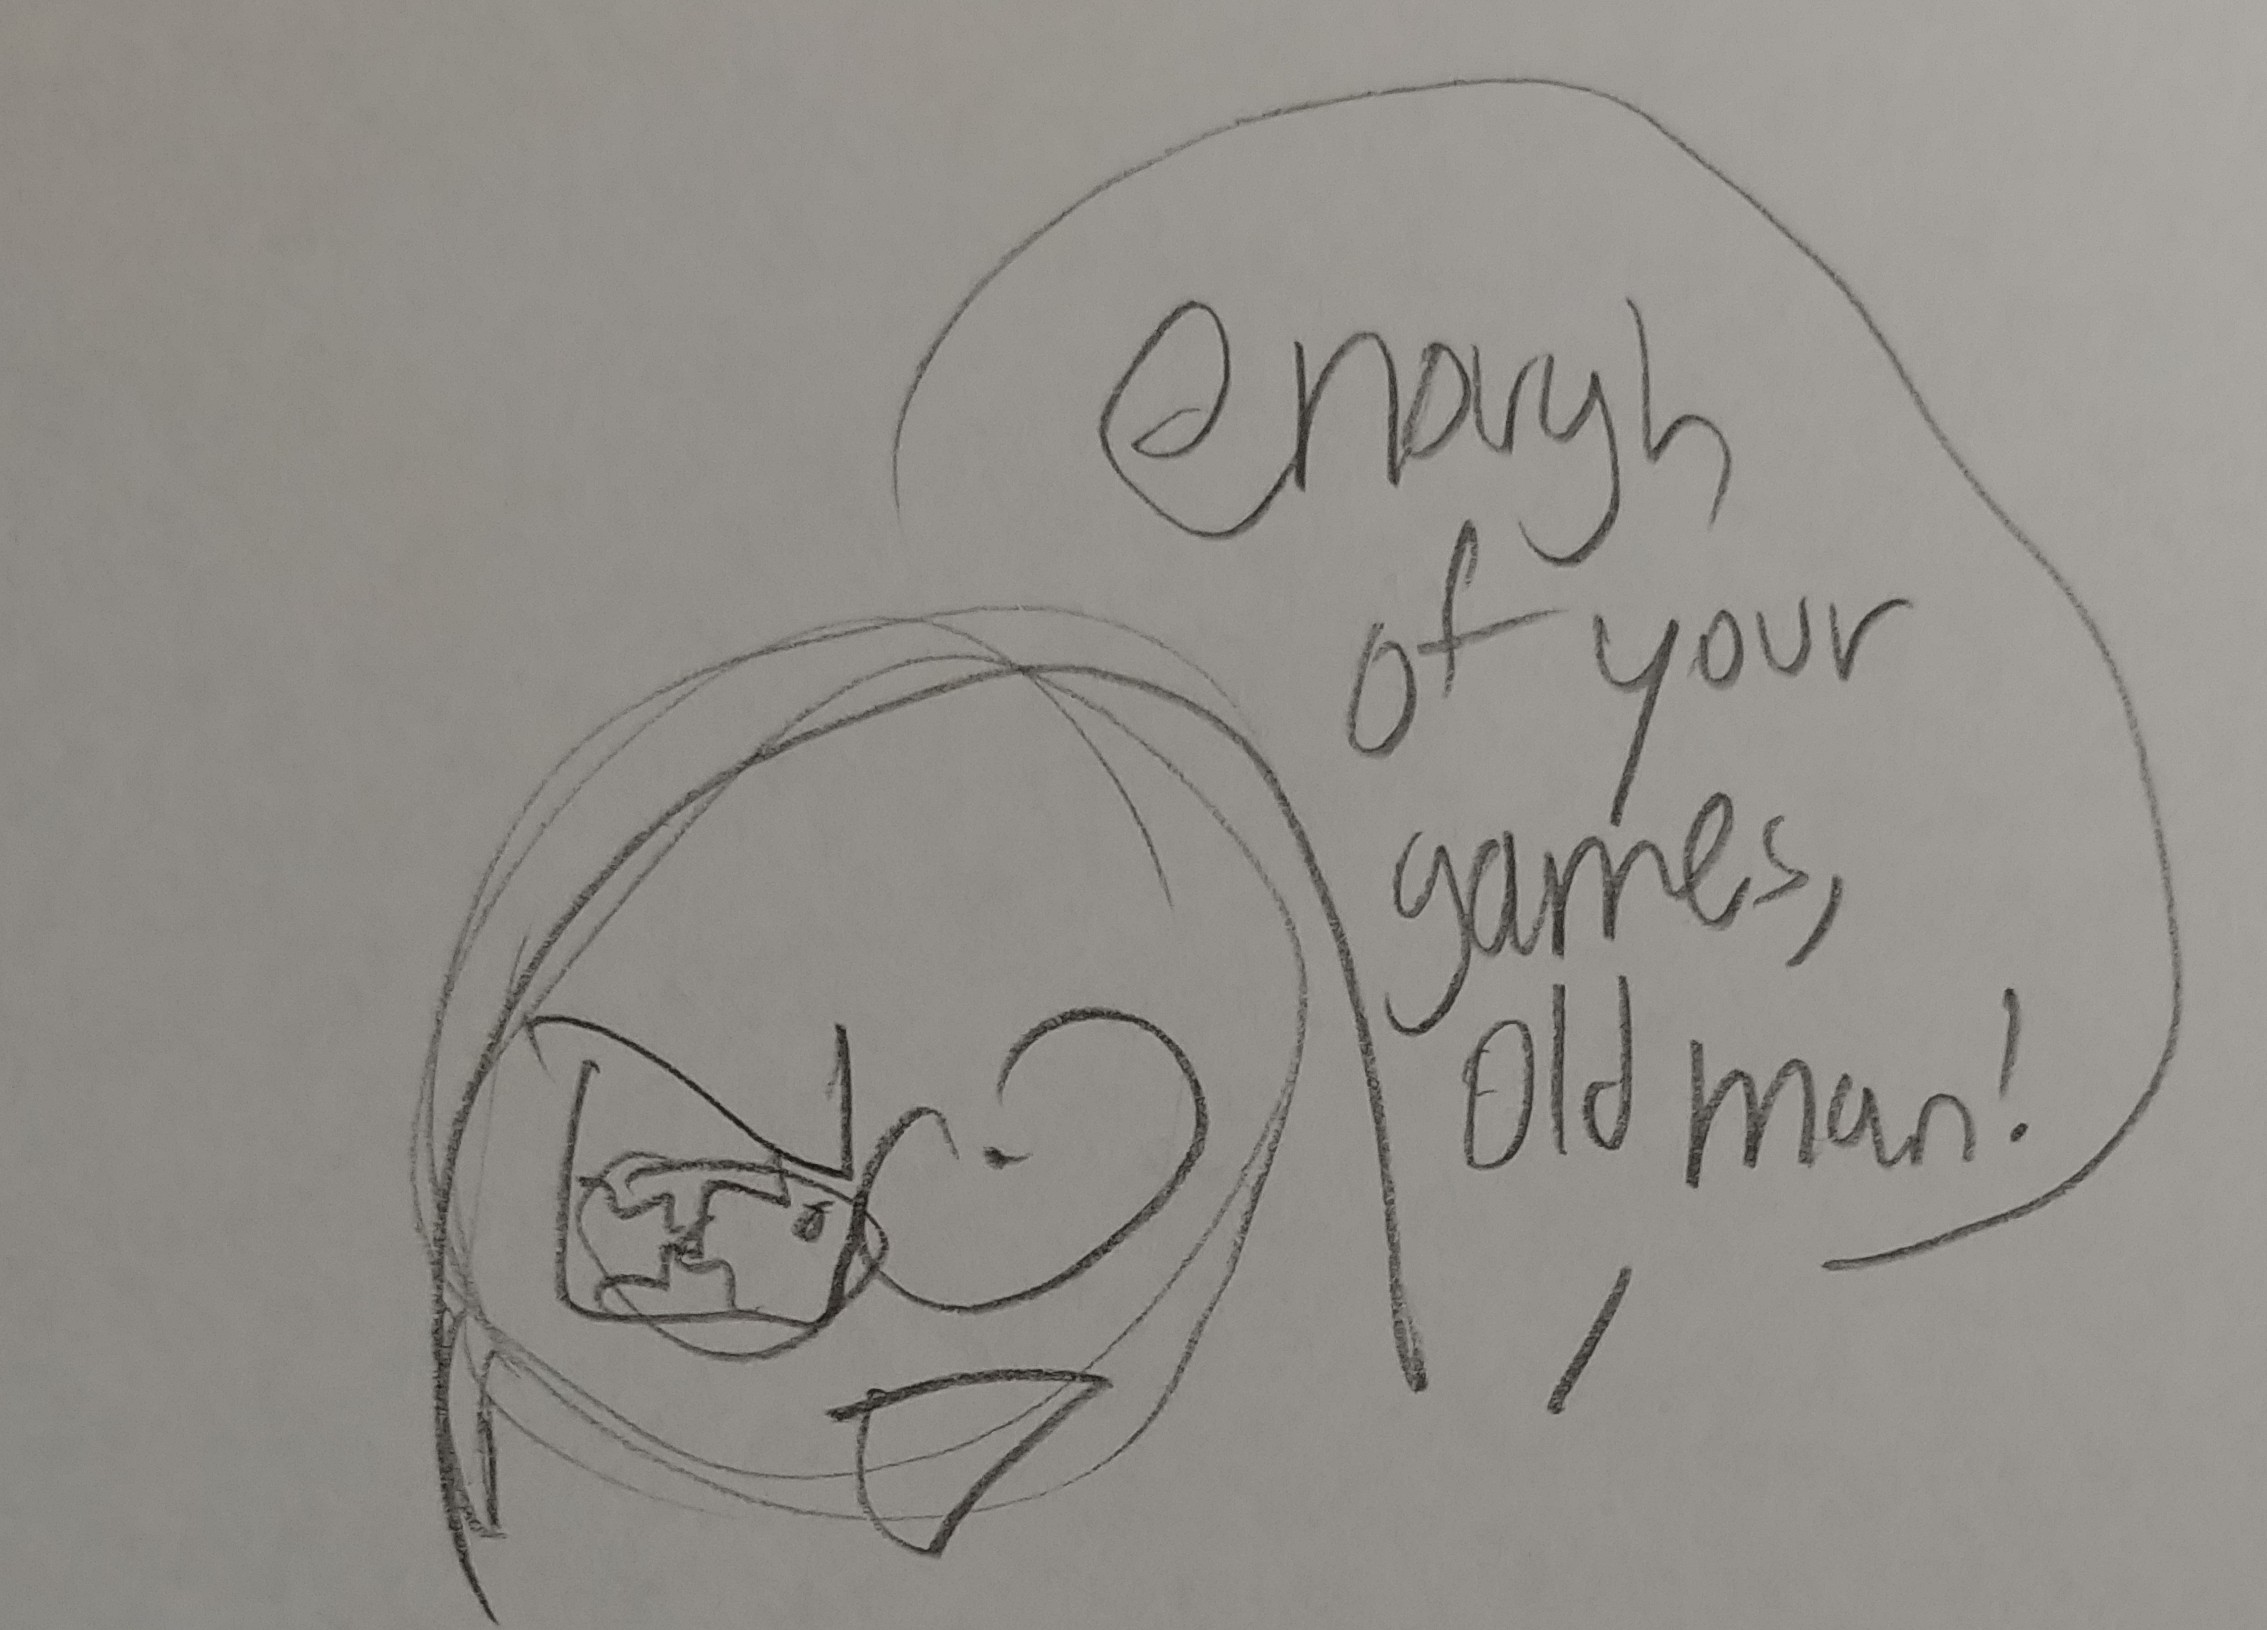 enough
of your
games,
old man!